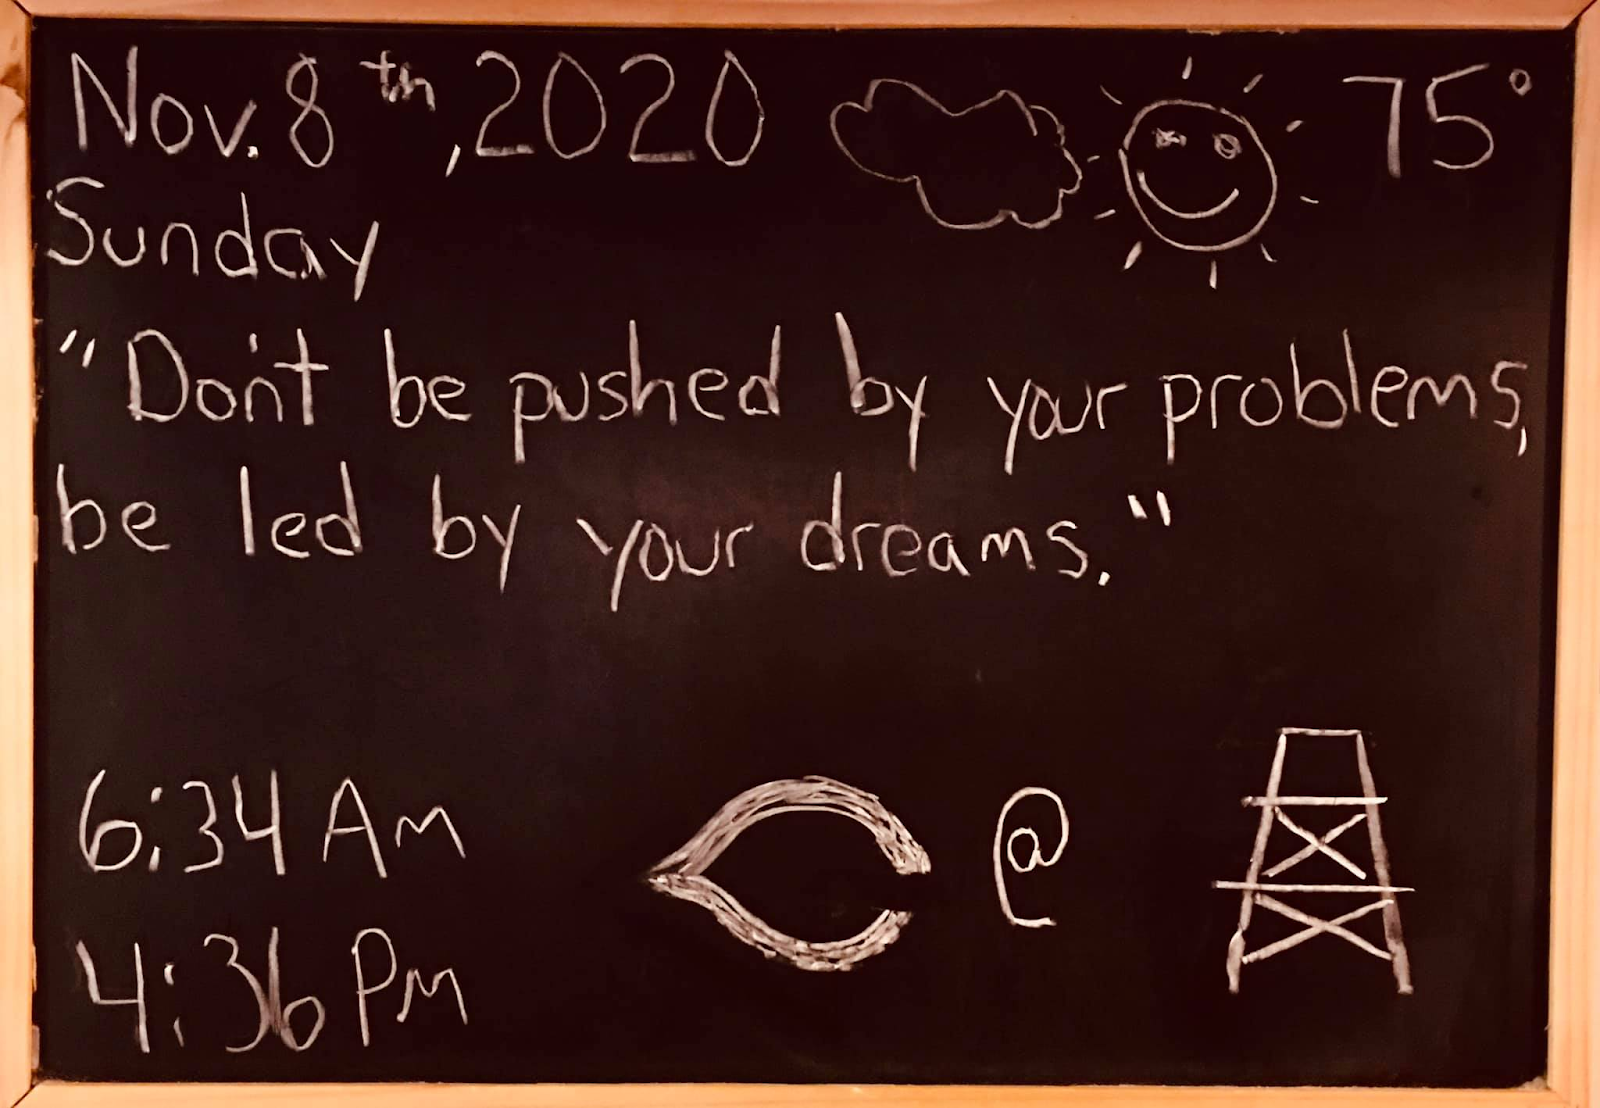 Nov. 8th, 2020 75°
Sunday
"Don't be pushed by your problems,
be led by your dreams."
6:34 Am
@
4:36 Pm